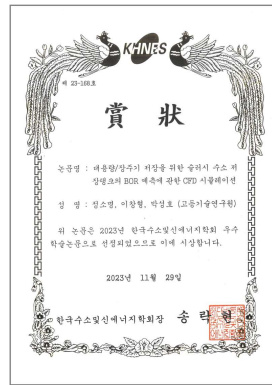 KHNES
제 23-168호
賞 狀
논문명 : 대용량/장주기 저장을 위한 슬러시 수소 저
장탱크의 BOR 예측에 관한 CFD 시뮬레이션
성 명 : 정소명, 이창형, 박성호 (고등기술연구원)
위 논문은 2023년 한국수소및신에너지학회 우수
학술논문으로 선정되었으므로 이에 시상합니다.
2023년 11월 29일
한국수소및신에너지학회장 송 락 현